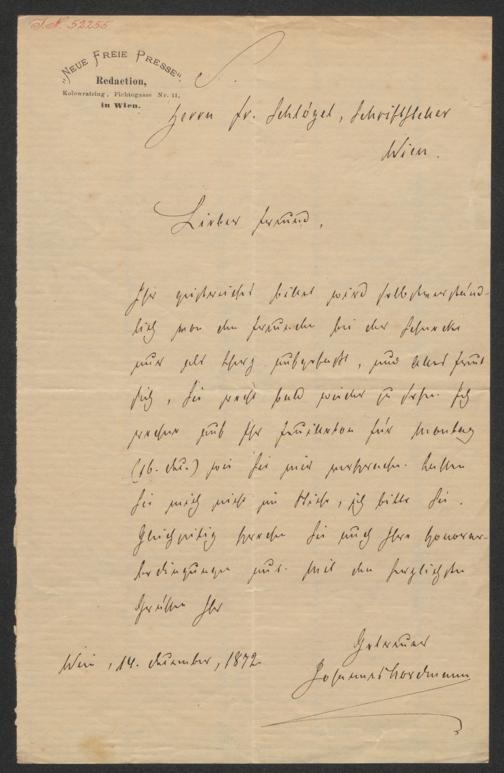 J.N. 52255
"NEUE FREIE PRESSE".
Redaction,
Kolowratring, Fichtegasse Nr. 11,
in Wien.
Herrn Fr. Schlögel, Schriftsteller
Wien.
Lieber Freund,
Ihr geistreiches Billet wird selbstverständ-
lich von den Freunden bei der Schnecke
nur als Scherz aufgefaßt, und alles freut
sich, Sie recht bald wieder zu sehen. Ich
rechne auf Ihr Feuilleton für Montag
(16. Dec.) wie Sie mir versprachen. Lassen
Sie mich nicht im Stiche, ich bitte Sie.
Gleichzeitig sprechen Sie auch Ihre Honorar-
bedingungen aus. Mit den herzlichsten
Grüßen Ihr
Getreuer
Johannes Nordmann
Wien, 14. December, 1872